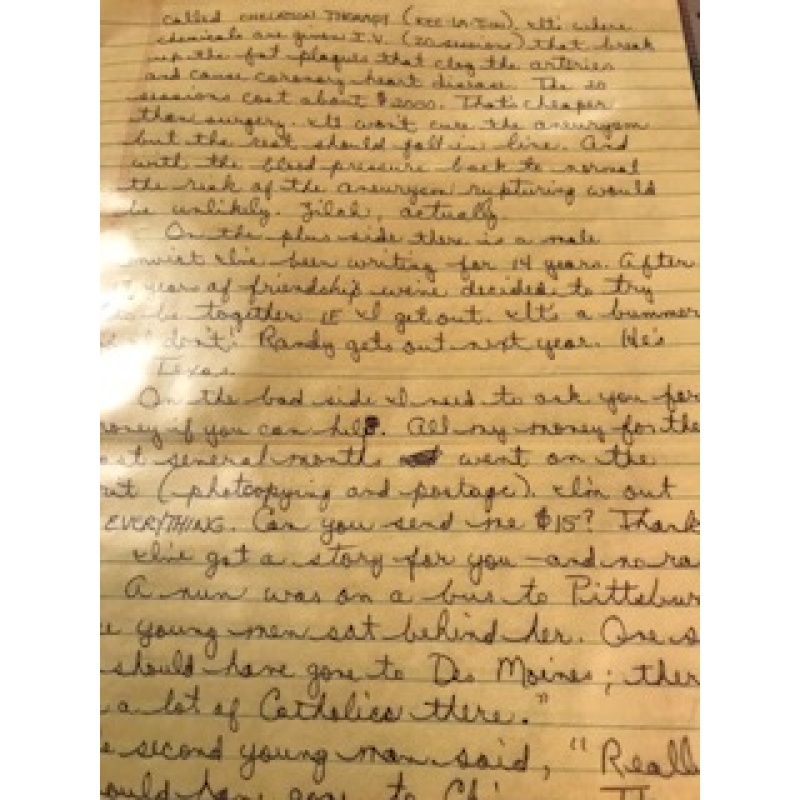 called CHELATION THERAPY (KEE-LA-TION). It's where
chemicals are given I.V. (20 sessions) that break
up the fat plaques that clog the arteries
and cause coronary heart disease. The 20
sessions cost about $2000. That's cheaper
than surgery. It won't cure the aneurysm
but the rest should fall in line. And
with the blood pressure back to normal
the risk of the aneurysm rupturing would
be unlikely. Zilch, actually.
On the plus side there is a male
convict I've been writing for 14 years. After
years of friendship we've decided to try
to be together IF I get out. It's a bummer
I don't! Randy gets out next year. He's
Texas.
On the bad side I need to ask you for
money if you can help. All my money for the
several months went on the
(photcopying and postage). I'm out
EVERYTHING. Can you send me $15? Thank
I've got a story for you - and no ra
A nun was on a bus to Pittsbur
young men sat behind her. One s
should have gone to Des Moines; ther
a lot of Catholics there."
second young man said, "Reall
ould have gone to Ch